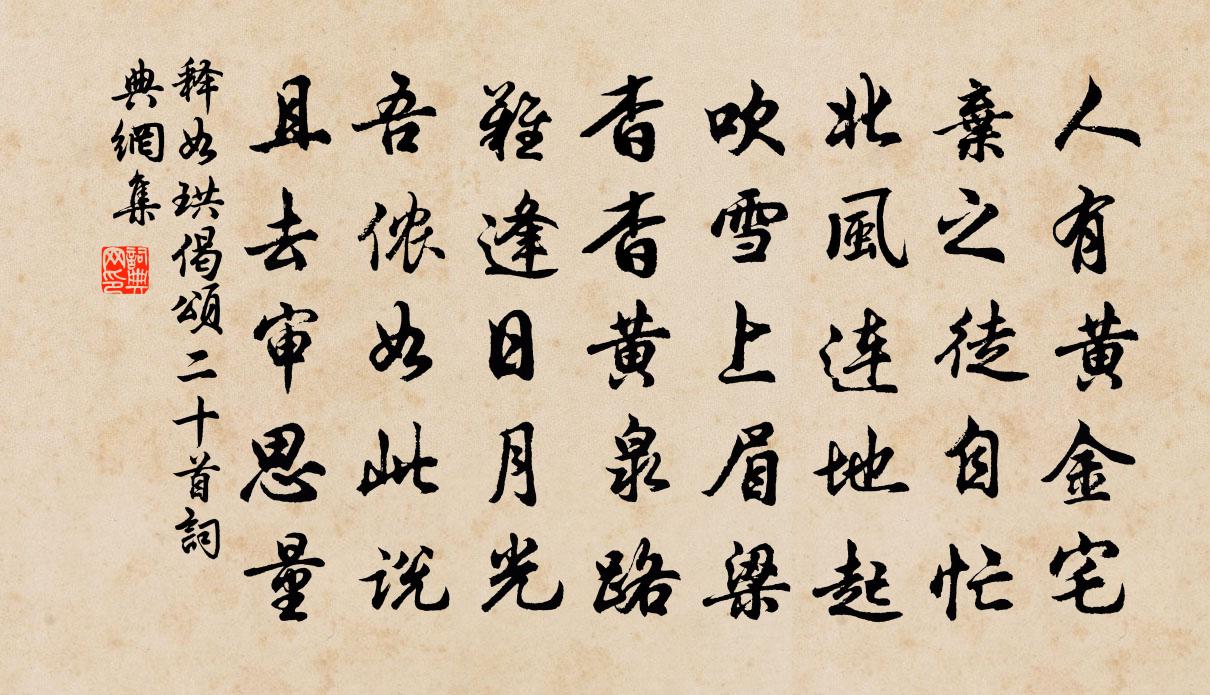 人有黄金宅
棄之徒自忙
北風连地起
吹雪上眉梁
杳杳黄泉路
難逢日月光
吾侬如此说
且去审思量
释如珙偈頌二十首詞
典網集
詞典网印